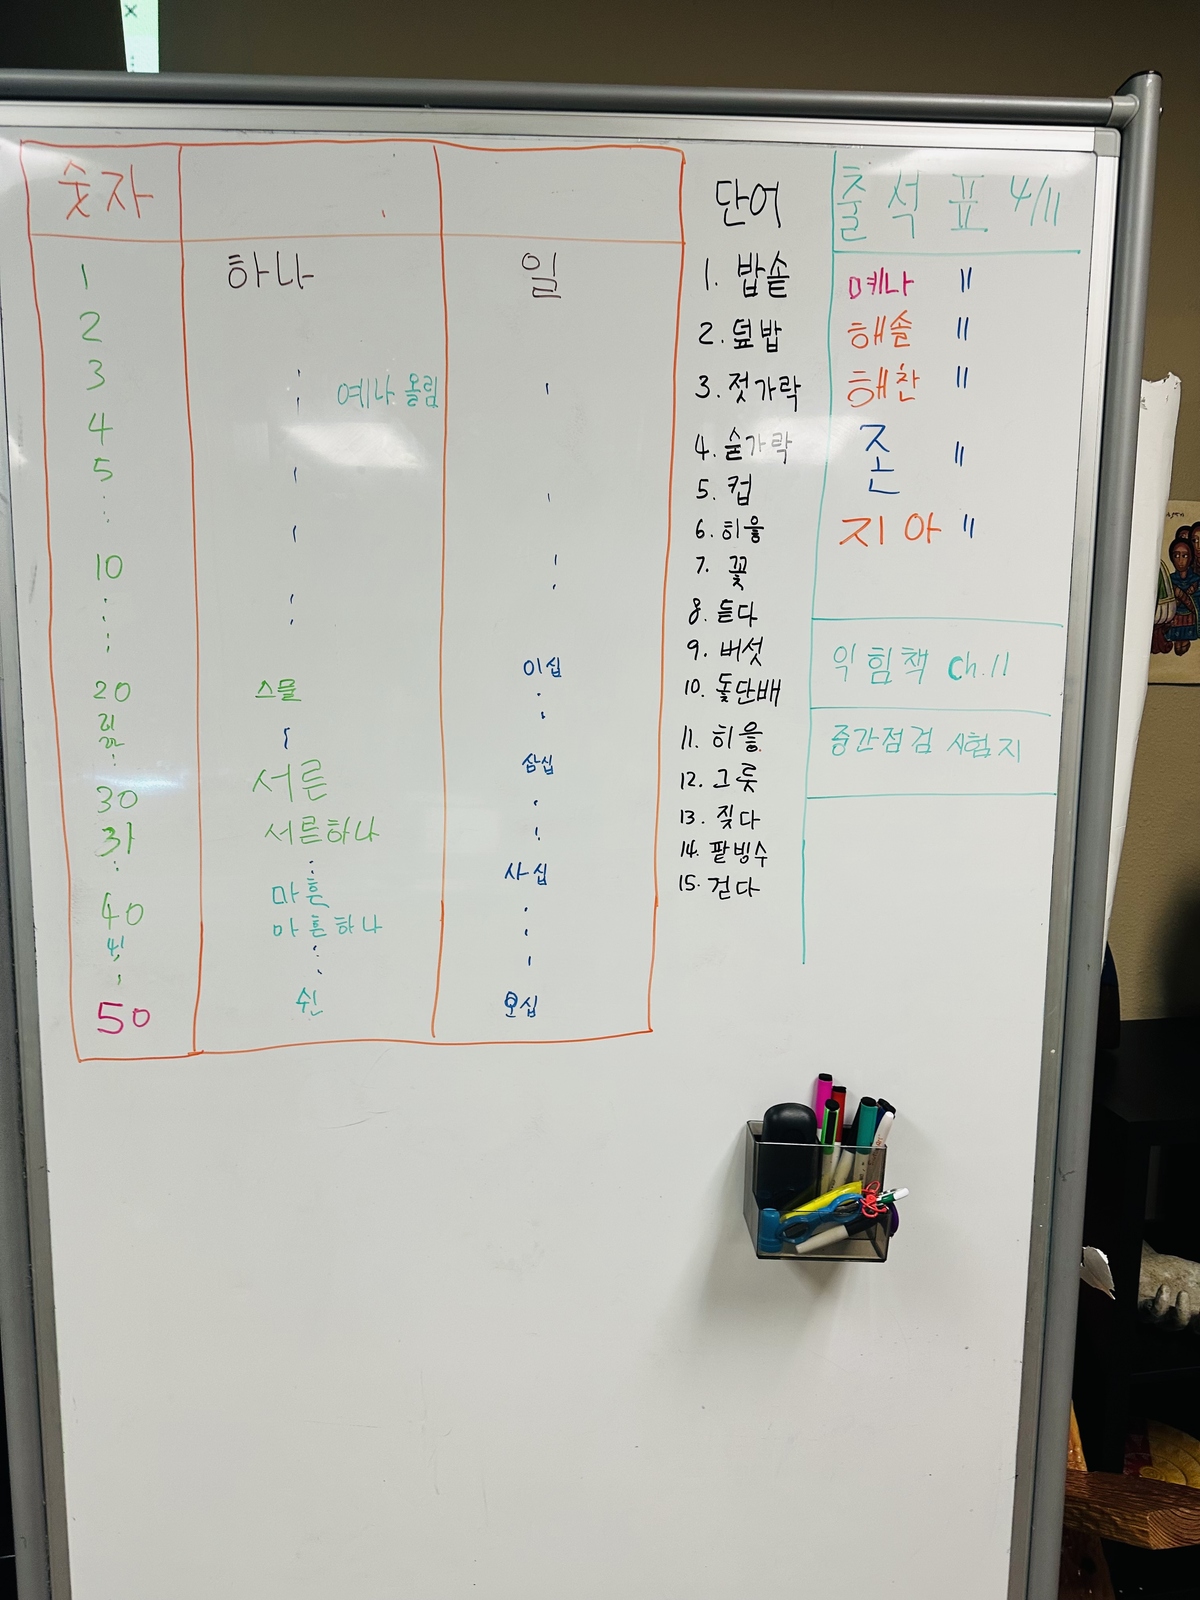 숫자
1 하나 일
2
3
예나 올림
4
5
10
20 스물 이십
21
30 서른 삼십
31 서른하나
40 마흔 사십
41 마흔하나
50 쉰 오십
단어
1. 밥솥
2. 덮밥
3. 젓가락
4. 숟가락
5. 컵
6. 히읗
7. 꽃
8. 듣다
9. 버섯
10. 돛단배
11. 히읗
12. 그릇
13. 짖다
14. 팥빙수
15. 걷다
출석표 4/11
예나 〃
해솔 〃
해찬 〃
존 〃
지아 〃
익힘책 Ch.11
중간점검 시험지